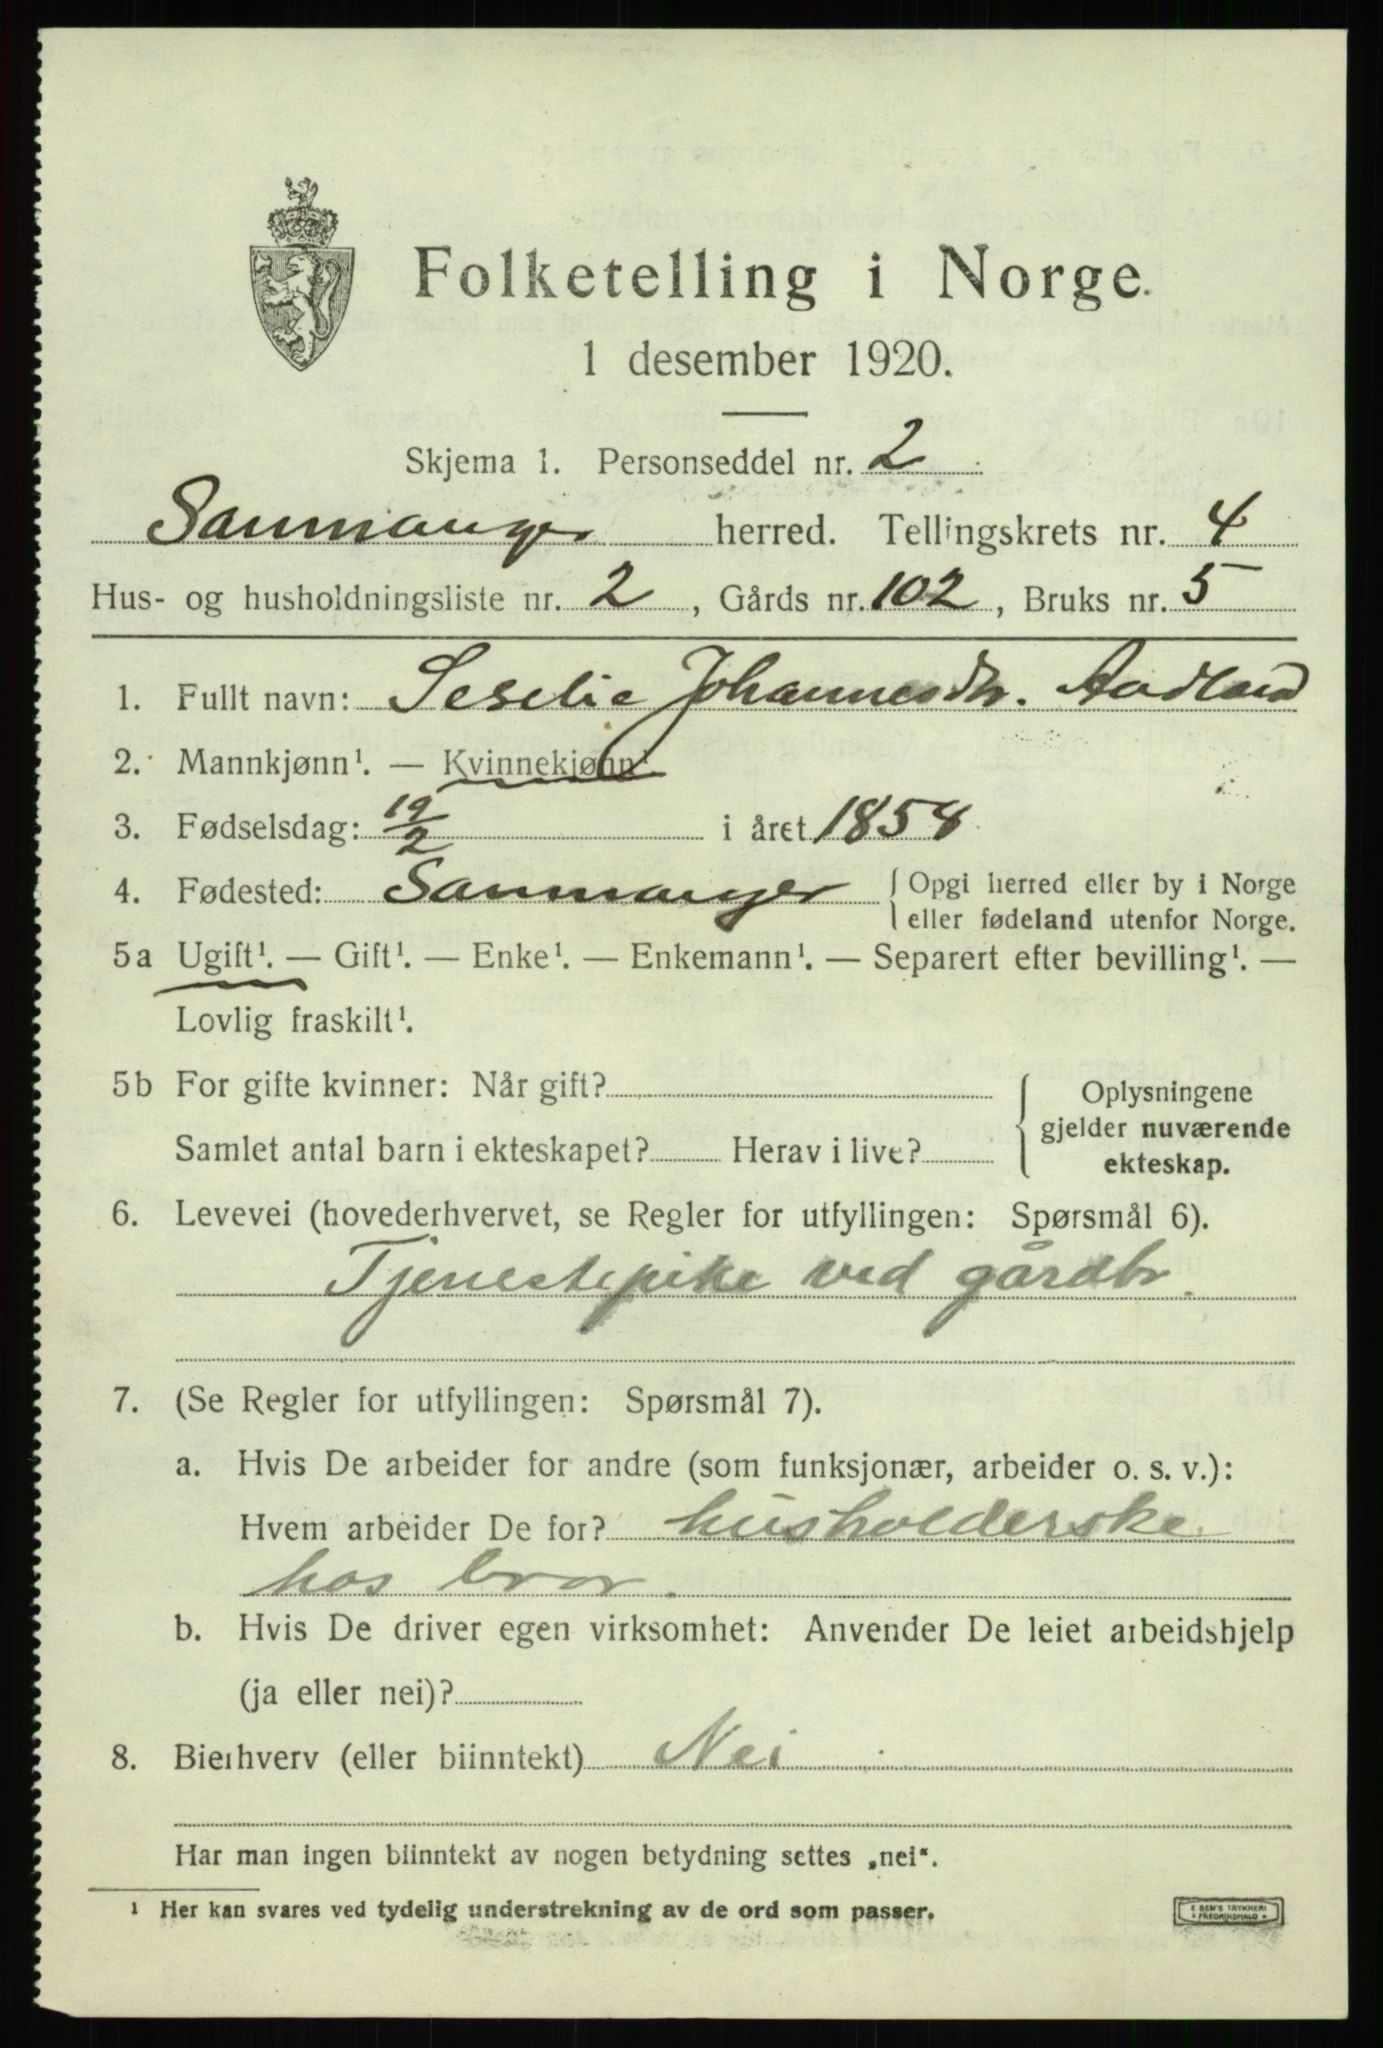 Folketelling i Norge.
1 desember 1920.
Skjema 1. Personseddel nr. 2
Sammanger herred. Tellingskrets nr. 4
Hus- og husholdningsliste nr. 2, Gårds nr. 102, Bruks nr. 5
1. Fullt navn: Seselie Johannesdtr. Aadland
2. Mannkjønn¹. — Kvinnekjønn¹.
3. Fødselsdag: 19/2 i året 1854
4. Fødested: Sammanger { Opgi herred eller by i Norge
eller fødeland utenfor Norge.
5a Ugift¹. — Gift¹. — Enke¹. — Enkemann¹. — Separert efter bevilling¹. —
Lovlig fraskilt¹.
5b For gifte kvinner: Når gift? { Oplysningene
gjelder nuværende
Samlet antal barn i ekteskapet? Herav i live?
ekteskap.
6. Levevei (hovederhvervet, se Regler for utfyllingen: Spørsmål 6).
Tjenestepike ved gårdbr.
7. (Se Regler for utfyllingen: Spørsmål 7).
a. Hvis De arbeider for andre (som funksjonær, arbeider o. s. v.):
Hvem arbeider De for? husholderske
hos bror.
b. Hvis De driver egen virksomhet: Anvender De leiet arbeidshjelp
(ja eller nei)?
8. Bierhverv (eller biinntekt) Nei
Har man ingen biinntekt av nogen betydning settes „nei“.
¹ Her kan svares ved tydelig understrekning av de ord som passer.
E SEM'S TRYKKERI
FREDRIKSHALD